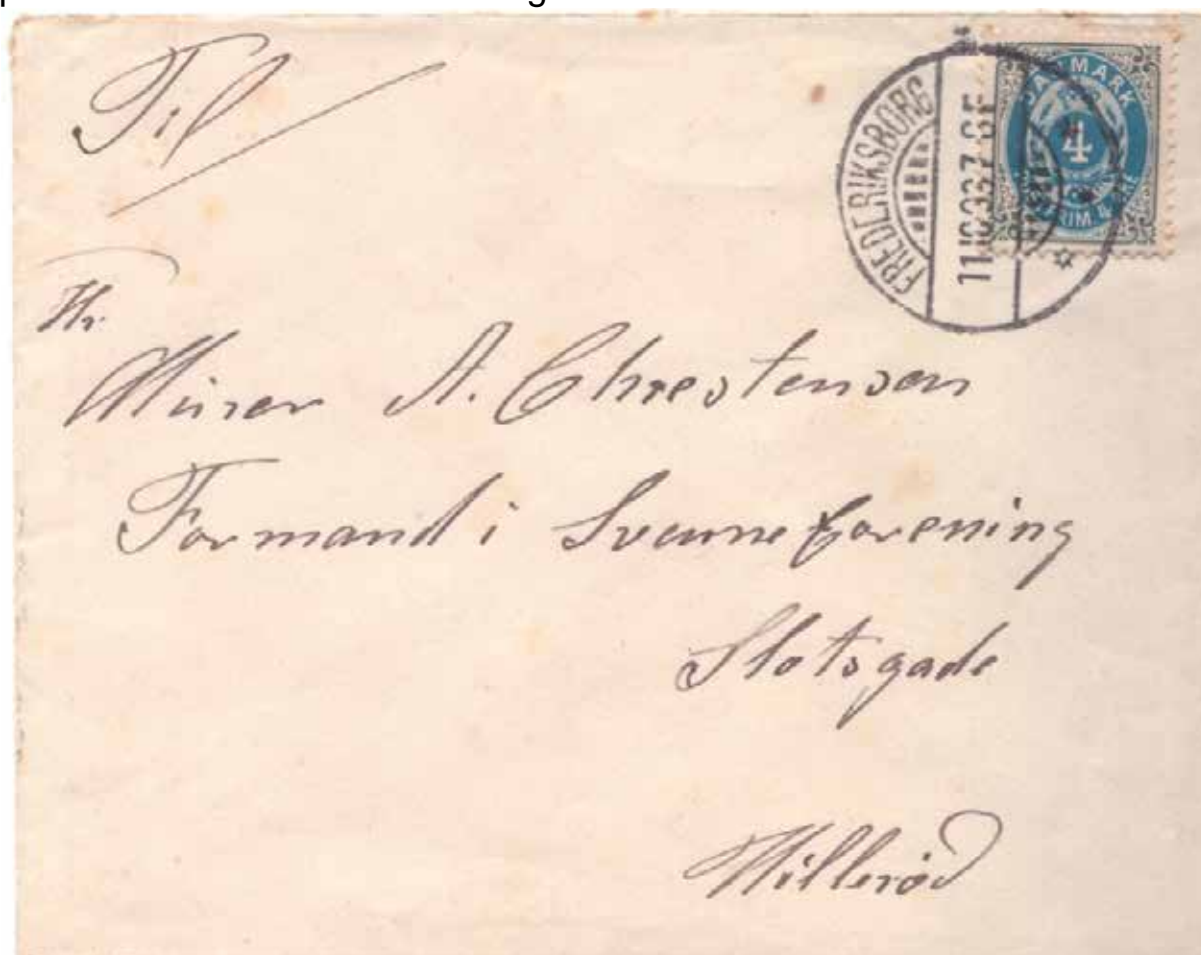 Til
FREDERIKSBORG
11.10.03.7-8F
DANMARK
4
Hr.
Murer A. Chrestensen
Formand i Svenneforening
Slotsgade
Hillerød